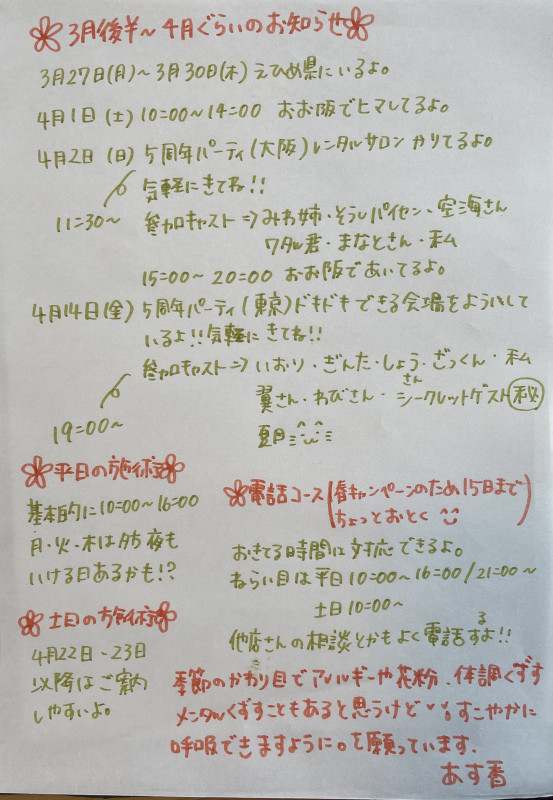 3月後半～4月ぐらいのお知らせ
3月27日(月)～3月30日(木) えひめ県にいるよ。
4月1日 (土) 10:00～14:00 おお阪でヒマしてるよ。
4月2日 (日) 5周年パーティ(大阪)レンタルサロン かりてるよ。
気軽にきてね!!
11:30～ 参加キャスト⇒みわ姉・そうしパイセン、空海さん
ワタル君・まなとさん・私
15:00～20:00 おお阪であいてるよ。
4月14日(金) 5周年パーティ(東京)ドキドキできる会場をよういして
いるよ!!気軽にきてね!!
参加キャスト⇒いおり・ぎんた・しょう・ざっくん・私
翼さん・わびさん・シークレットゲストさん㊙
19:00～
夏日
平日の施術
基本的に10:00～16:00
月・火・木は夕方夜も
いける日あるかも!?
電話コース(春キャンペーンのため15日まで
ちょっとおとく)
おきてる時間は対応できるよ。
ねらい目は平日10:00～16:00/21:00～
土日10:00～
他店さんの相談とかもよく電話するよ!!
土日の施術
4月22日・23日
以降はご案内
しやすいよ。
季節のかわり目でアレルギーや花粉、体調くずす
メンタルくずすこともあると思うけど すこやかに
呼吸できますように。を願っています.
あす香